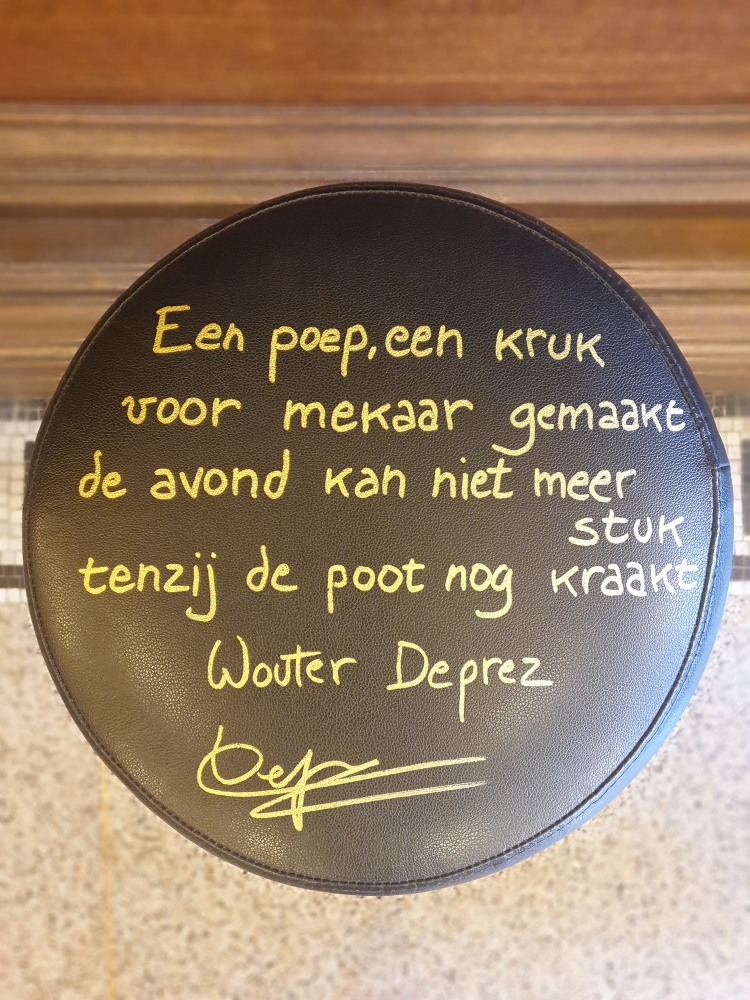 Een poep, een kruk
voor mekaar gemaakt
de avond kan niet meer
stuk
tenzij de poot nog kraakt
Wouter Deprez
Dep